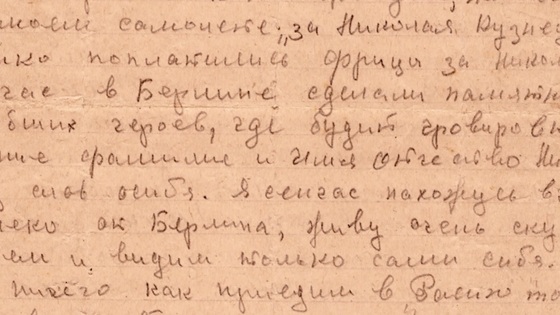 моем самолете; „за Николая Кузне
ко поплатились фрицы за Никол
час в Берлине сделали памятн
бших героев, где будит гровиров
ние фамилие и имя отчество Ни
слов осибя. Я сейчас нахожусь в
леко от Берлина, живу очень ску
ем и видим только сами сибя.
ничего как приедим в Расию то